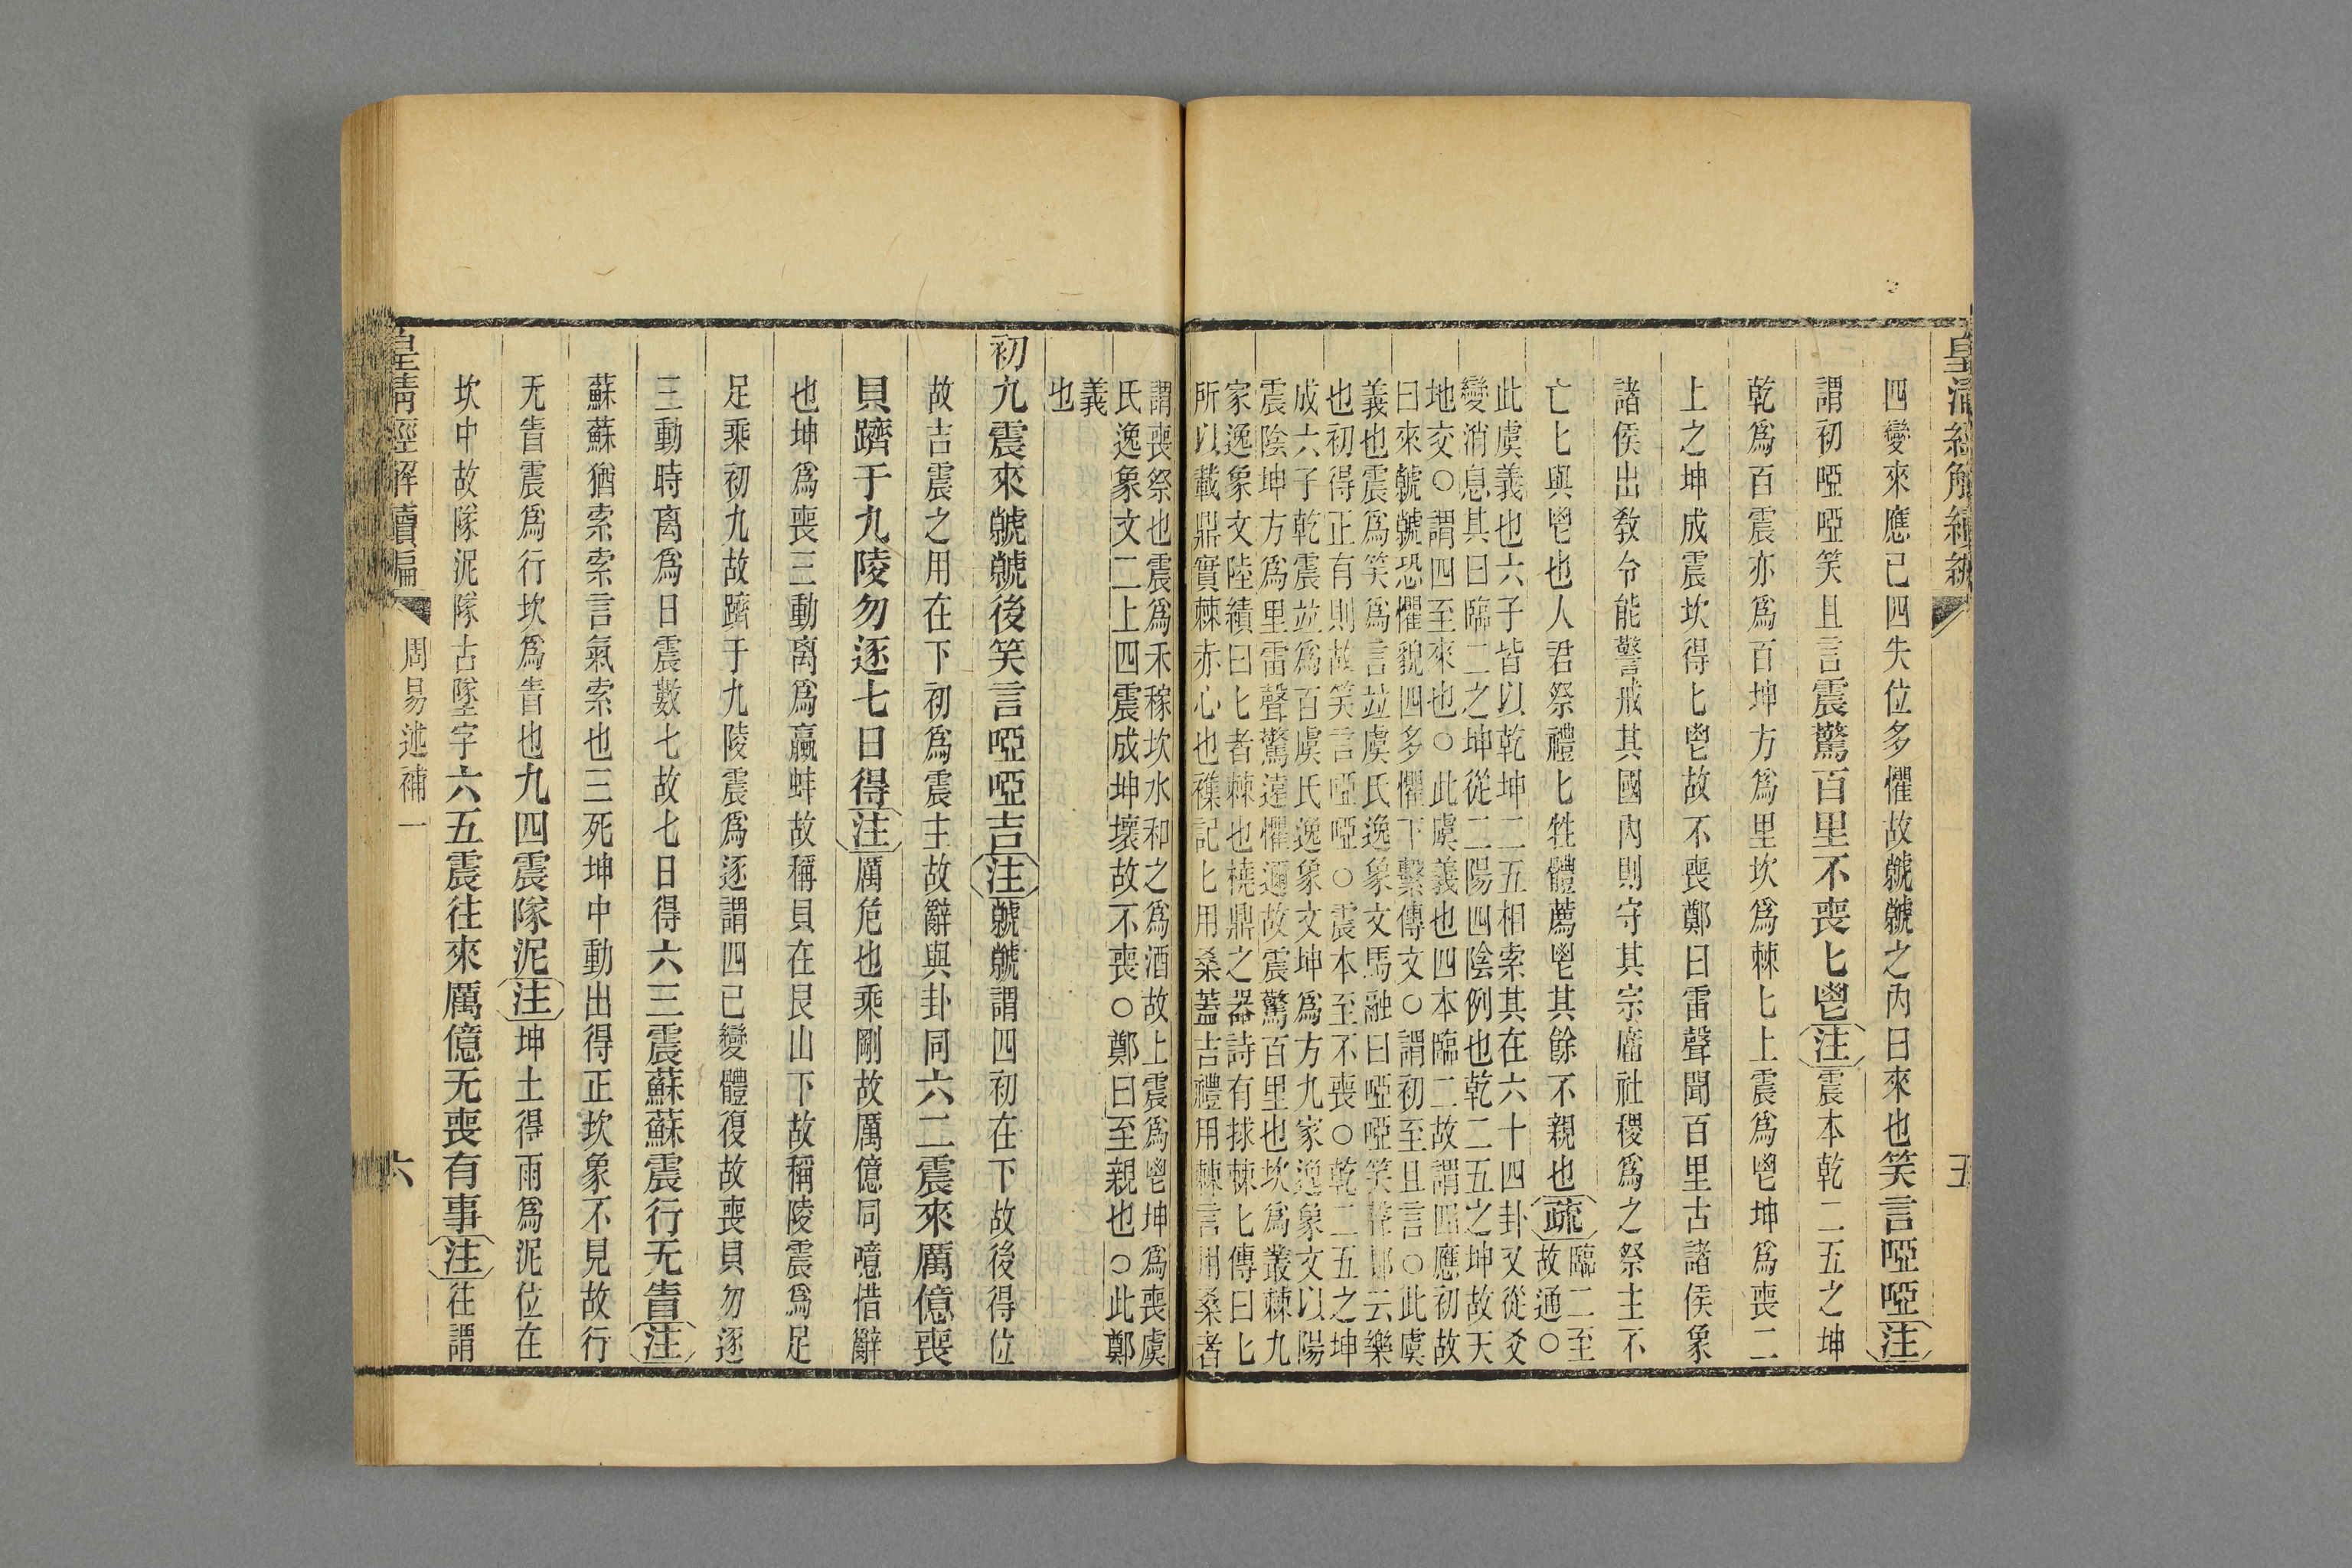 皇清經解續編
五
四變來應已四失位多懼故虩虩之內曰來也笑言啞啞注
謂初啞啞笑且言震驚百里不喪匕鬯注震本乾二五之坤
乾爲百震亦爲百坤方爲里坎爲棘匕上震爲鬯坤爲喪二
上之坤成震坎得匕鬯故不喪鄭曰雷聲聞百里古諸侯象
諸侯出教令能警戒其國內則守其宗廟社稷爲之祭主不
亡匕與鬯也人君祭禮匕牲體薦鬯其餘不親也疏
臨二至
故通○
此虞義也六子皆以乾坤二五相索其在六十四卦又從爻
變消息其曰臨二之坤從二陽四陰例也乾二五之坤故天
地交○謂四至來也○此虞義也四本臨二故謂四應初故
曰來虩虩恐懼貌四多懼下繫傳文○謂初至且言○此虞
義也震爲笑爲言竝虞氏逸象文馬融曰啞啞笑聲鄭云樂
也初得正有則故笑言啞啞○震本至不喪○乾二五之坤
成六子乾震竝爲百虞氏逸象文坤爲方九家逸象文以陽
震陰坤方爲里雷聲驚遠懼邇故震驚百里也坎爲叢棘九
家逸象文陸績曰匕者棘也橈鼎之器詩有捄棘匕傳曰匕
所以載鼎實棘赤心也襍記匕用桑蓋吉禮用棘言用桑者
謂喪祭也震爲禾稼坎水和之爲酒故上震爲鬯坤爲喪虞
氏逸象文二上四震成坤壞故不喪○鄭曰至親也○此鄭
義
也
初九震來虩虩後笑言啞啞吉注虩虩謂四初在下故後得位
故吉震之用在下初爲震主故辭與卦同六二震來厲億喪
貝躋于九陵勿逐七日得注厲危也乘剛故厲億同噫惜辭
也坤爲喪三動离爲蠃蚌故稱貝在艮山下故稱陵震爲足
足乘初九故躋于九陵震爲逐謂四已變體復故喪貝勿逐
三動時离爲日震數七故七日得六三震蘇蘇震行无眚注
蘇蘇猶索索言氣索也三死坤中動出得正坎象不見故行
无眚震爲行坎爲眚也九四震隊泥注坤土得雨爲泥位在
坎中故隊泥隊古墜字六五震往來厲億无喪有事注往謂
皇清經解續編
周易述補一
六